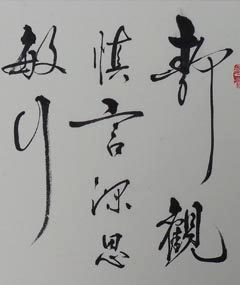 静観
慎言深思
敏行